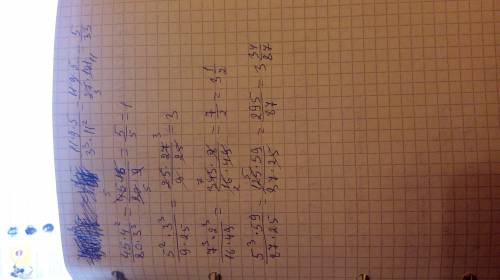 11·9·5 / 3³·11² = 11·9·5 / 27·121 = 5/33
45·4² / 20·3² = 45·16 / 20·9 = 5/5 = 1
5²·3³ / 9·25 = 25·27 / 9·25 = 3
7³·2³ / 16·49 = 343·8 / 16·49 = 7/2 = 3 1/2
5³·59 / 87·25 = 125·59 / 87·25 = 295/87 = 3 34/87